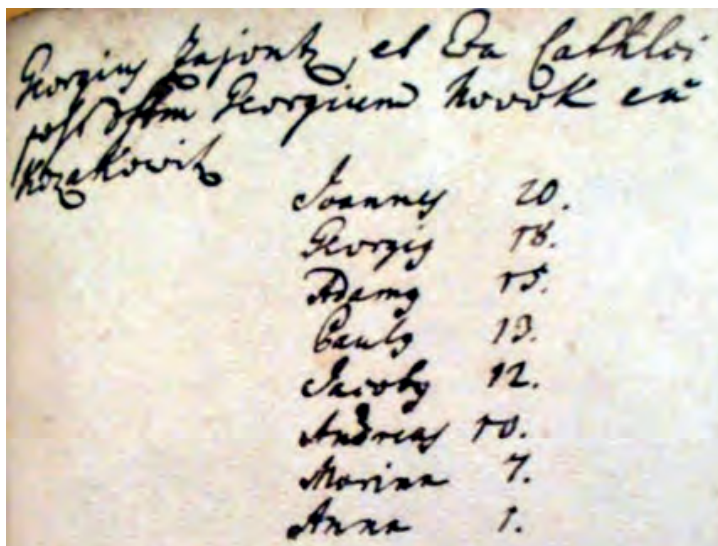 Georgius Zajontz, et Eva Cathlci
post dftm Georgium Novok ex
Kozakowitz
Joannes 20.
Georgig 18.
Adamg 15.
Paulg 13.
Jacobg 12.
Andreas 10.
Marina 7.
Anna 1.